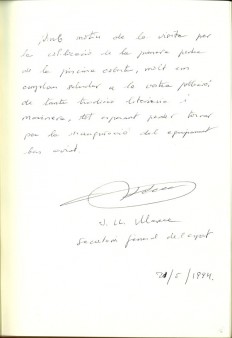 Amb motiu de la visita per
la col·locació de la primera pedra
de la piscina coberta, molt em
complau saludar a la vostra població
de tanta tradició literaria i
marinera, tot esperant poder tornar
per la inauguració del equipament
ben aviat.
J. Ll.
Secretari general de l'esport
21/5/1994.